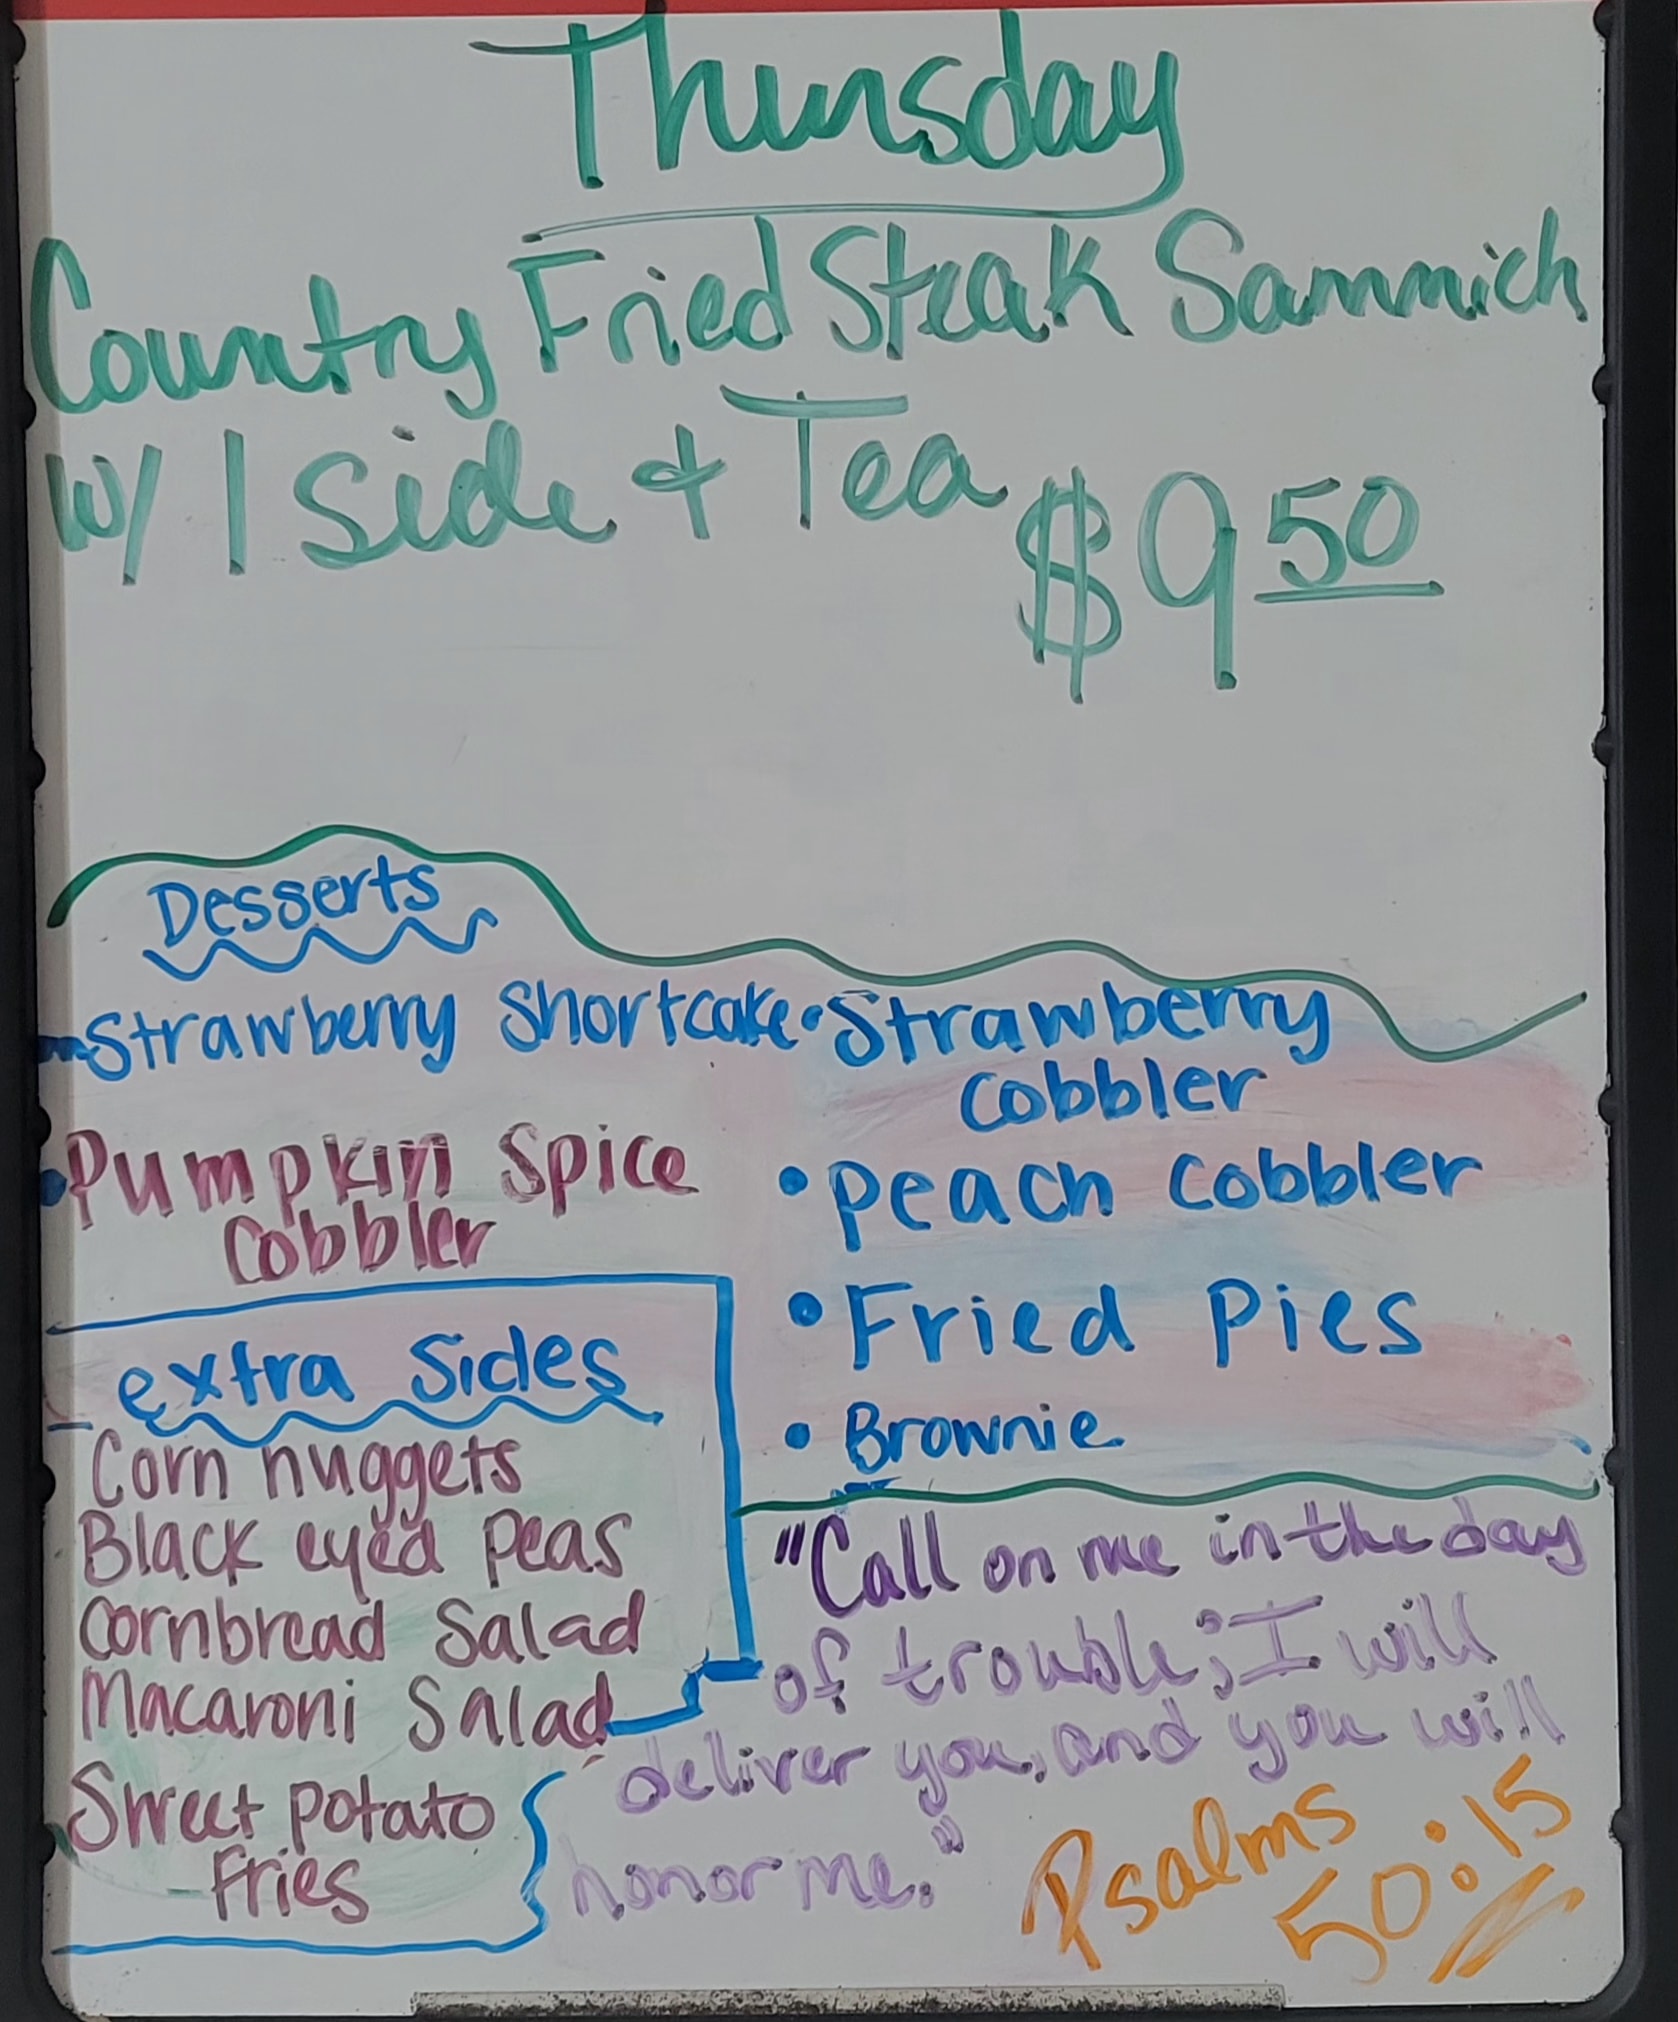 Thursday
Country Fried Steak Sammich
w/ 1 Side + Tea $9 50
Desserts
Strawberry Shortcake
• Pumpkin Spice
Cobbler
• Strawberry
Cobbler
• Peach Cobbler
• Fried Pies
• Brownie
extra Sides
Corn nuggets
Black eyed Peas
Cornbread Salad
Macaroni Salad
Sweet potato
Fries
"Call on me in the day
of trouble; I will
deliver you, and you will
honor me."
Psalms
50:15